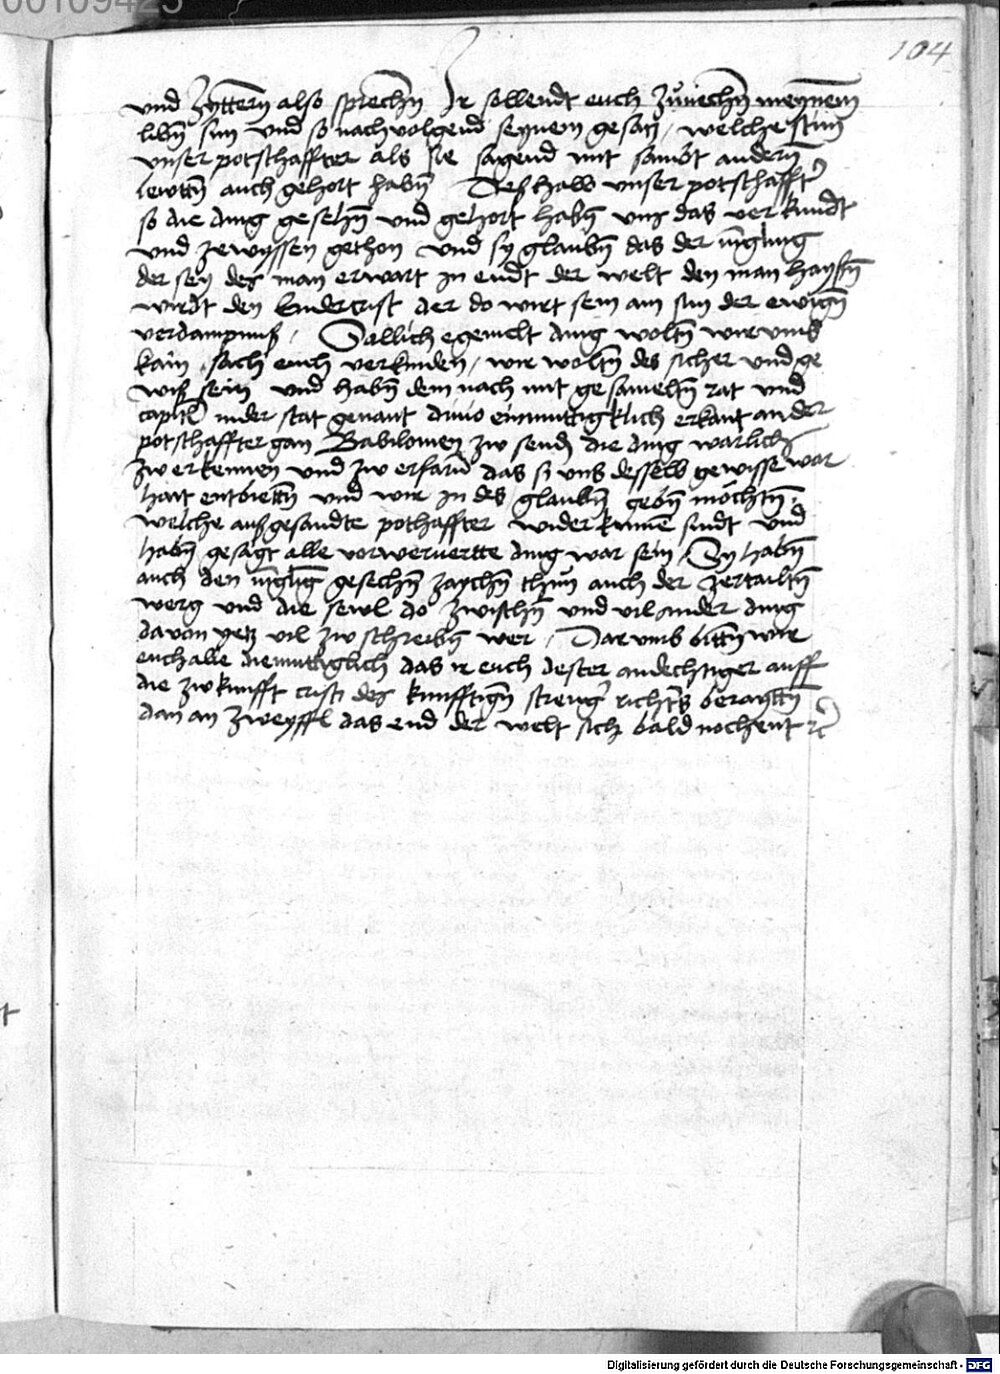 00109423
104
und Zyttern also sprechen̄ Ir sollendt euch zůnechn̄ meynem̄
libn̄ sun und so nachvolgend seynem gesatz / welche stim̄
unser potschaffter als sie sagend mit sambt andern̄
lewtn̄ auch gehort habn̄ Deßhalb unser potschafft
so die ding gesehn̄ und gehort habn̄ uns das verkundt
und zewyssen gethon und sy glaubn̄ das der iu̅gling
der sey des man erwart in endt der welt den man haysn̄
wirdt den Endtcrist der do wirt sein ain sun der ewign̄
verdampnuß / Söllich egemelt ding woltn̄ wir umb
kain sach euch verkunden / wir woltn̄ des sicher und ge
wiß sein und habn̄ dem nach mit gesameltn̄ rat und
capitl̄ inder stat genant einmuttigklich erkant an der
potschaffter gan Babilonien zw send̄ die ding warlich
zw erkennen und zw erfarn̄ das si uns desselb gewisse war
hait entbiettn̄ und wir in des glaubn̄ gebn̄ möchtn̄ /
welche außgesandte pothaffter wider kumen̄ sindt und
habn̄ gesagt alle ding war sein / Sy habn̄
auch den iu̅gling̅ gesechn̄ zaychn̄ thun̄ auch der zertailtn̄
werg und die sewl do zwischn̄ und vil ander ding
davon yetz vil zw schreibn̄ wer / Darumb bittn̄ wir
euch alle diemuttigklich das ir euch dester andechtiger auff
die zwkunfft cristi des kunfftign̄ streng̅ richters beraytn̄
dan an zweyffl das end der welt sich bald nochent ꝛc
Digitalisierung gefördert durch die Deutsche Forschungsgemeinschaft - DFG